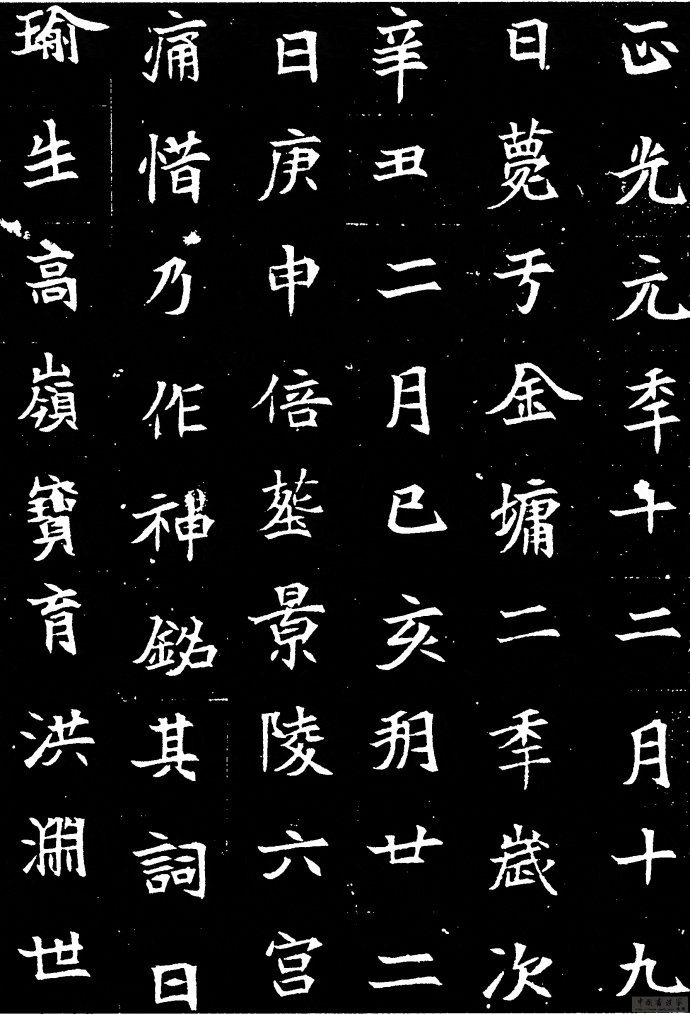 正光元秊十二月十九
日薨于金墉二秊歲次
辛丑二月己亥朔廿二
日庚申倍塟景陵六宫
痛惜乃作神銘其詞曰
瑜生高嶺寶育洪淵世